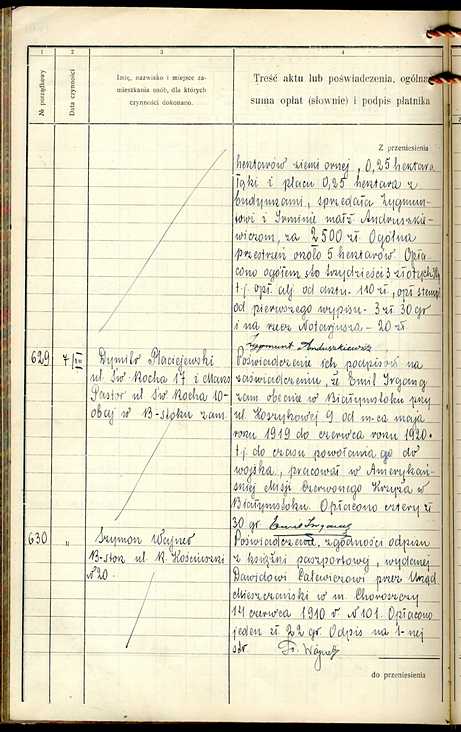 1
2
3
4
№ porządkowy
Data czynności
Imię, nazwisko i miejsce za-
mieszkania osób, dla których
czynności dokonano.
Treść aktu lub poświadczenia, ogólna
suma opłat (słownie) i podpis płatnika
Z przeniesienia
hektarów ziemi ornej, 0,25 hektara
łąki i placu 0,25 hektara z
budynkami, sprzedała Zygmun-
towi i Irminie małż Andruszkie-
wiczom, za 2500 zł. Ogólna
przestrzeń około 5 hektarów. Opła-
cono ogółem sto trzydzieści 3 złotych
t.j. opł. alj od aktu - 110 zł, opł stempl
od pierwszego wypisu - 3 zł 30 gr
i na rzecz Notarjusza - 20 zł
Zygmunt Andruszkiewicz
629
7/III
Dymitr Maciejewski
ul. Św. Rocha 17 i
Pastor ul Św Rocha 10-
obaj w B-stoku zam.
Poświadczenie ich podpisów na
zaświadczeniu, że Emil Irgang
zam obecnie w Białymstoku przy
ul Koszykowej 9 od m-ca maja
roku 1919 do czerwca roku 1920.
t.j. do czasu powołania go do
wojska, pracował w Amerykań-
skiej Misji Czerwonego Krzyża w
Białymstoku. Opłacono cztery zł
30 gr Emil Irgang
630
"
Szymon Wajnes
B-stok ul. K. Kościuszki
№ 20.
Poświadczenie zgodności odpisu
z książki paszportowej, wydanej
Dawidowi Calewiczowi przez Urząd
Mieszczański w m. Choroszczy
14 czerwca 1910 r № 101. Opłacono
jeden zł 22 gr. Odpis na 1-nej
str.
do przeniesienia